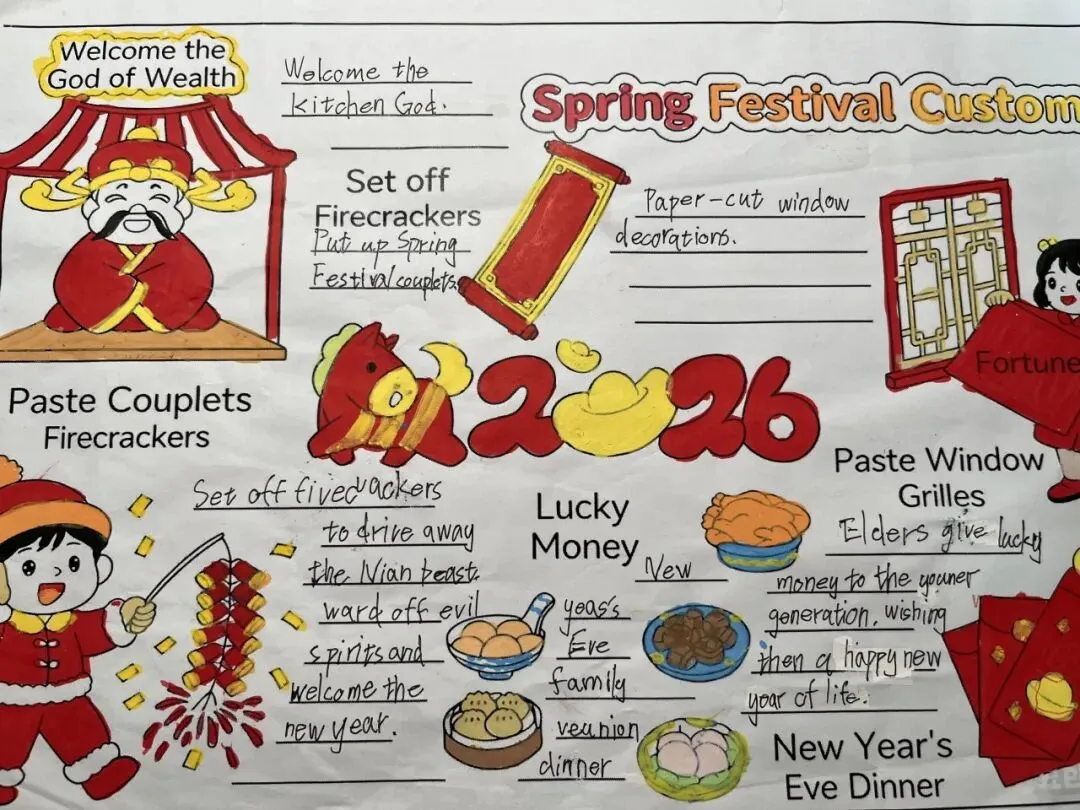 Welcome the
God of Wealth
Welcome the
kitchen God.
Spring Festival Custom
Set off
Firecrackers
Put up Spring
Festival couplets.
Paper-cut window
decorations.
Fortune
2026
Paste Couplets
Firecrackers
Set off firedrackers
to drive away
the Nian beast.
ward off evil
spirits and
welcome the
new year.
Lucky
Money
New
yeas's
Eve
family
veunion
dinner
Paste Window
Grilles
Elders give lucky
money to the youner
generation, wishing
then a happy new
year of life.
New Year's
Eve Dinner